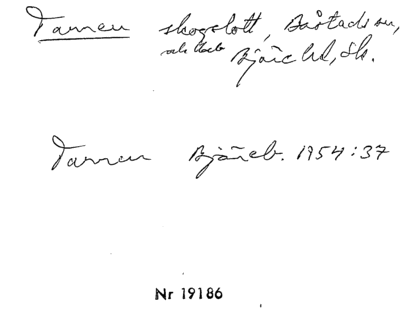 Tarren skogslott, Båstads sn,
och Bjäre hd, Sk.
Tarren Bjäreb. 1954:37
Nr 19186